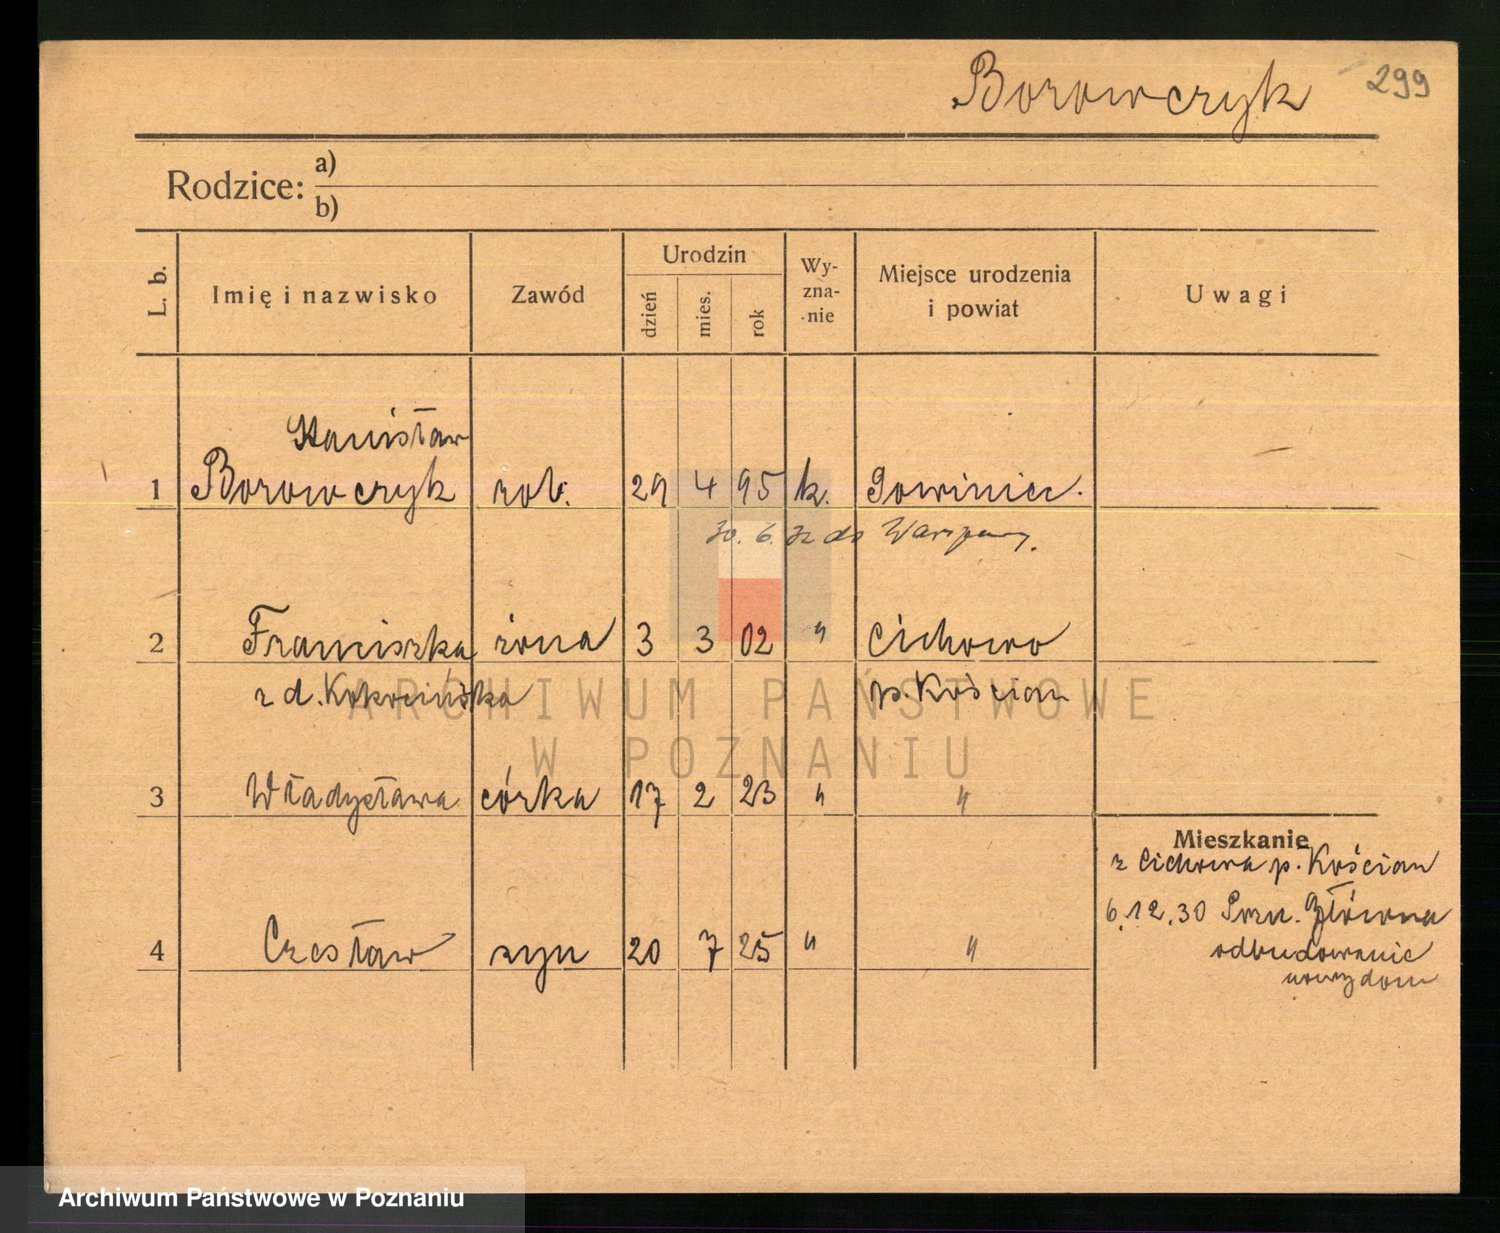 Borowczyk 299
Rodzice: a)
b)
L. b. Imię i nazwisko Zawód Urodzin dzień mies. rok Wy-zna-nie Miejsce urodzenia i powiat Uwagi
Stanisław
1 Borowczyk rob. 29 4 95 k. Gowiniec.
30. 6. 32 do Warszawy.
2 Franciszka żona 3 3 02 " Cichowo
z d. p. Kościan
3 Władysława córka 17 2 23 " "
Mieszkanie
z Cichowa p. Kościan
6.12.30 Główna
4 Czesław syn 20 7 25 " "
odbudowanie
nowy dom
ARCHIWUM PAŃSTWOWE
W POZNANIU
Archiwum Państwowe w Poznaniu